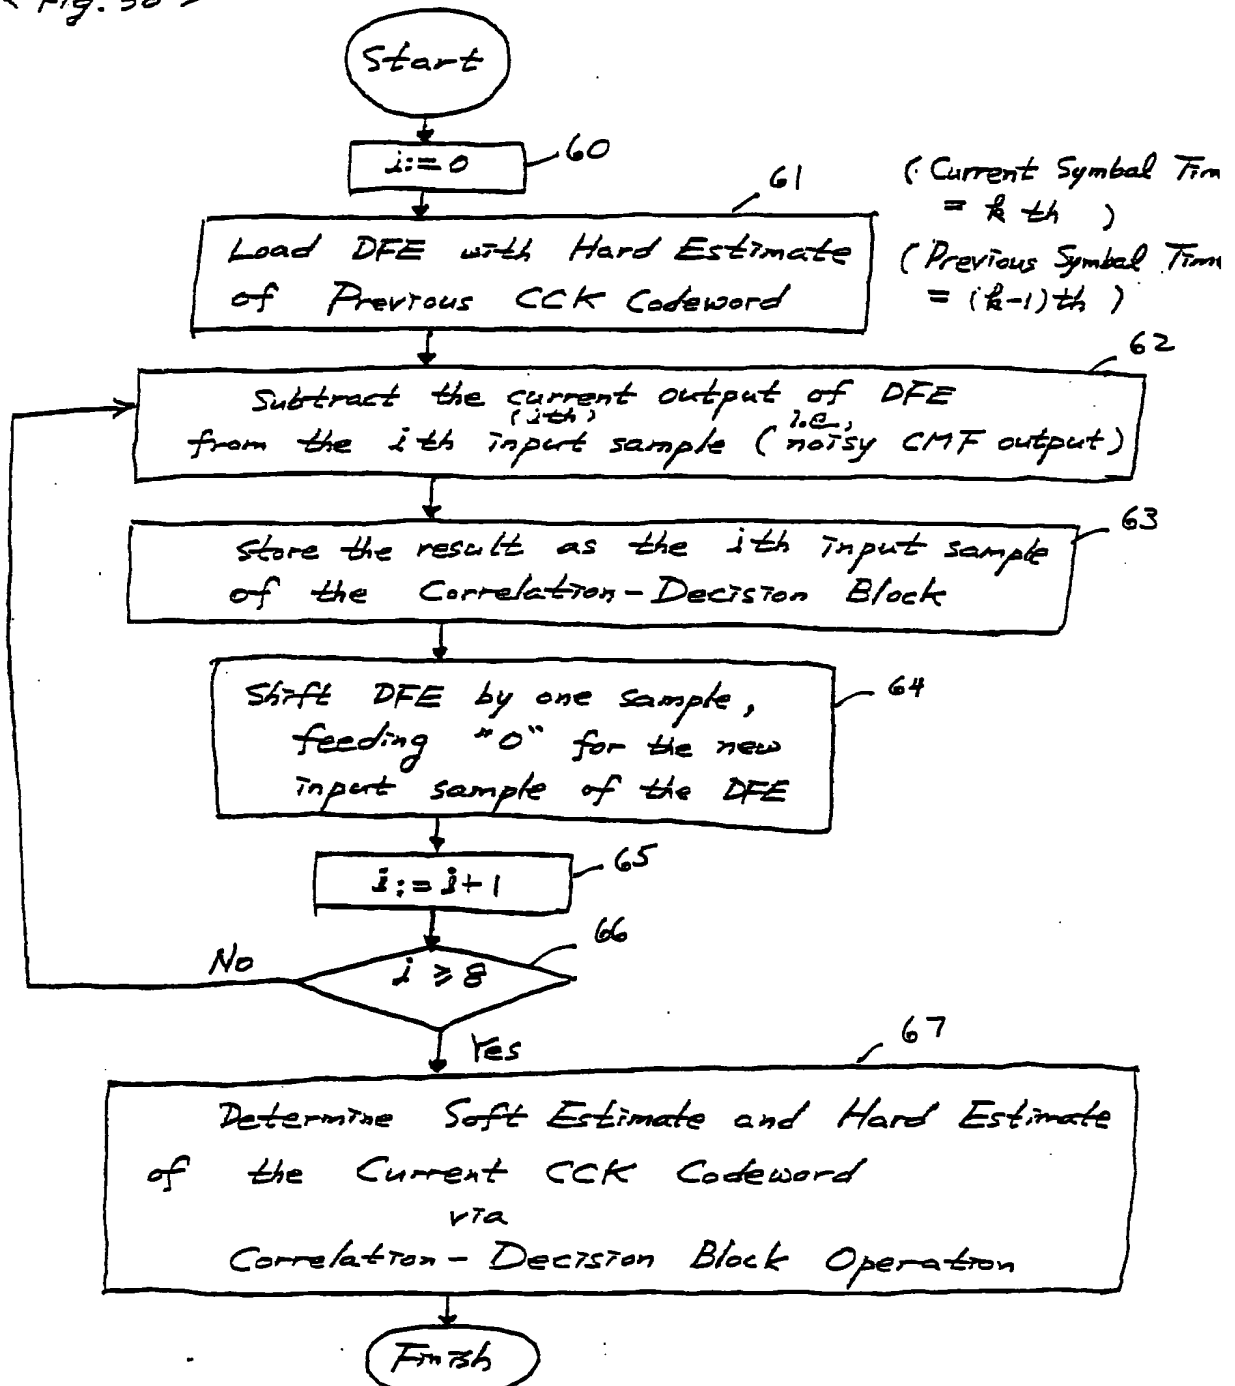 Start
i:=0
60
61
(Current Symbol Tim
= k th )
(Previous Symbol Tim
= (k-1)th )
Load DFE with Hard Estimate
of Previous CCK Codeword
62
Subtract the current output of DFE
(ith) i.e.,
from the ith input sample (noisy CMF output)
63
Store the result as the ith input sample
of the Correlation-Decision Block
64
Shift DFE by one sample,
feeding "0" for the new
input sample of the DFE
65
i:=i+1
66
No
i ≥ 8
Yes
67
Determine Soft Estimate and Hard Estimate
of the Current CCK Codeword
via
Correlation-Decision Block Operation
Finish